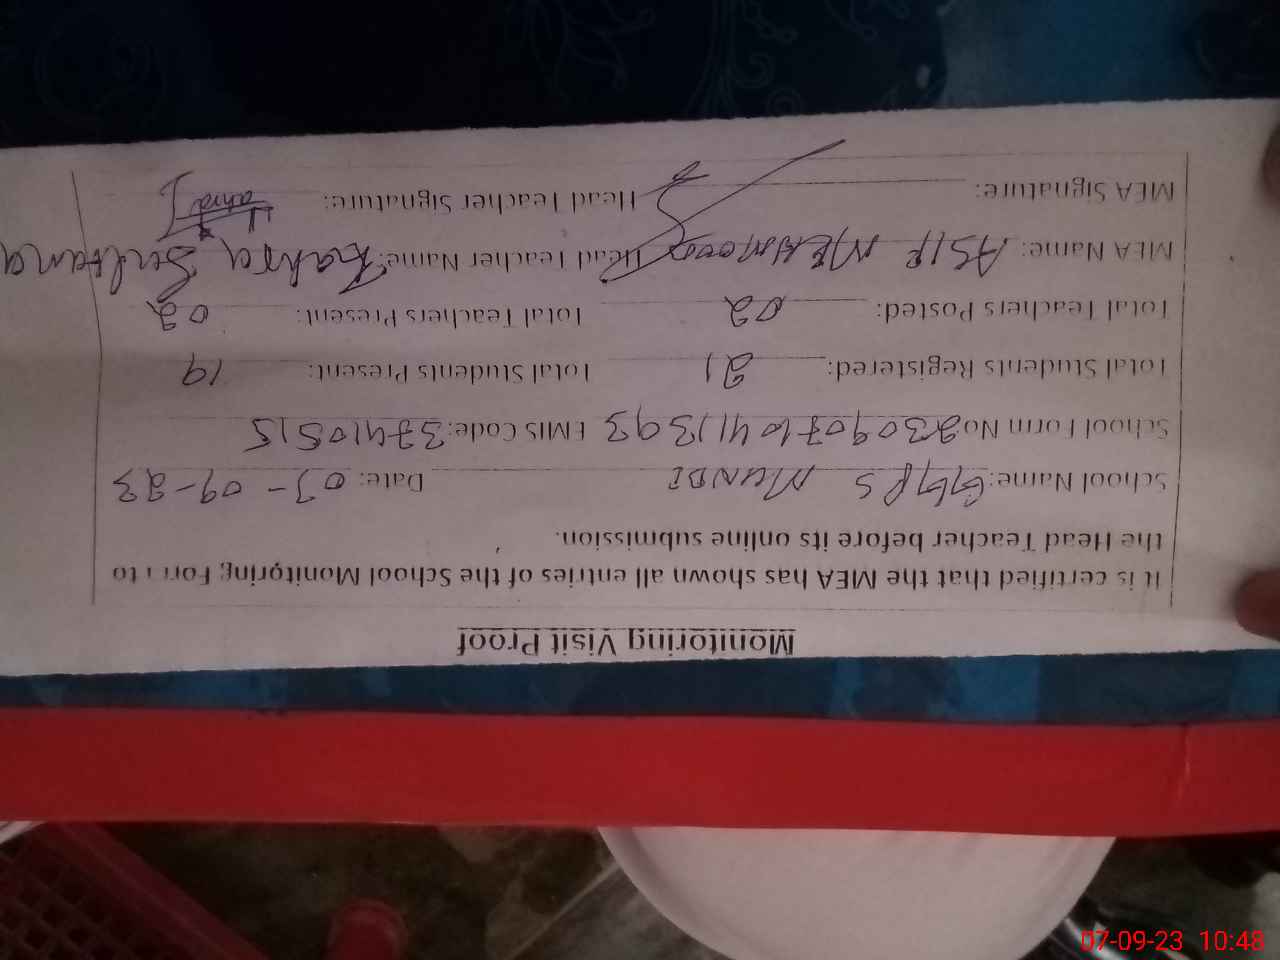 Monitoring Visit Proof
It is certified that the MEA has shown all entries of the School Monitoring Form to
the Head Teacher before its online submission.
School Name: GGPS MUNDI Date: 07-09-23
School Form No 230907104111393 EMIS Code: 37410515
Total Students Registered: 21 Total Students Present: 19
Total Teachers Posted: 02 Total Teachers Present: 02
MEA Name: ASIF MEHMOOD Head Teacher Name: Zahra Sultana
MEA Signature: Head Teacher Signature:
07-09-23 10:48